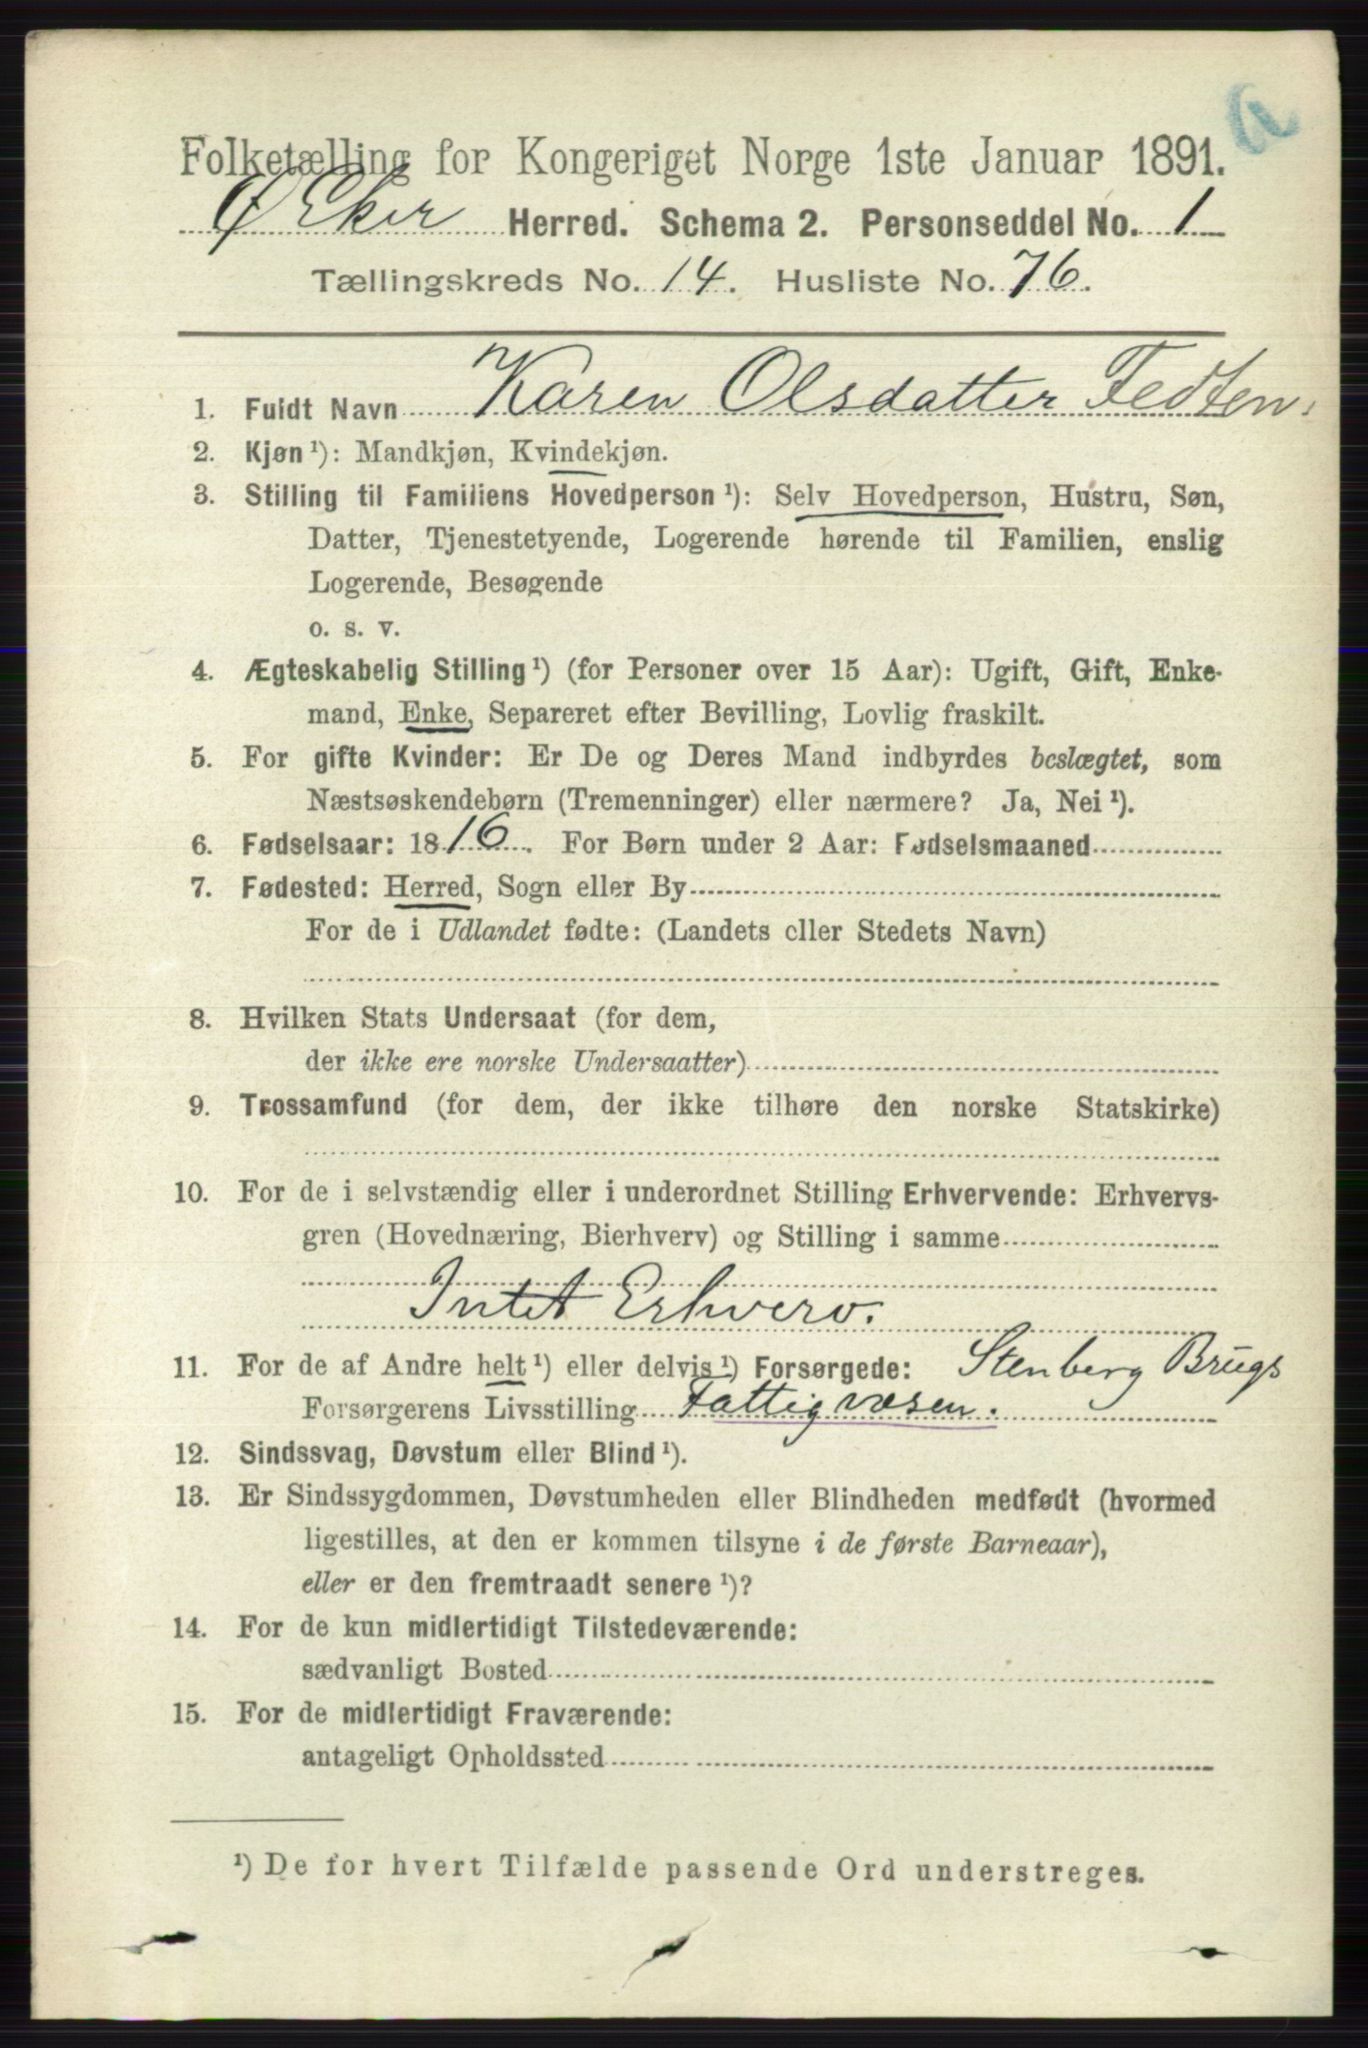 a
Folketælling for Kongeriget Norge 1ste Januar 1891.
Ø Eker Herred. Schema 2. Personseddel No. 1
Tællingskreds No. 14. Husliste No. 76.
1. Fuldt Navn Karen Olsdatter Fedten.
2. Kjøn ¹): Mandkjøn, Kvindekjøn.
3. Stilling til Familiens Hovedperson ¹): Selv Hovedperson, Hustru, Søn,
Datter, Tjenestetyende, Logerende hørende til Familien, enslig
Logerende, Besøgende
o. s. v.
4. Ægteskabelig Stilling ¹) (for Personer over 15 Aar): Ugift, Gift, Enke-
mand, Enke, Separeret efter Bevilling, Lovlig fraskilt.
5. For gifte Kvinder: Er De og Deres Mand indbyrdes beslægtet, som
Næstsøskendebørn (Tremenninger) eller nærmere? Ja, Nei ¹).
6. Fødselsaar: 1816. For Børn under 2 Aar: Fødselsmaaned
7. Fødested: Herred, Sogn eller By
For de i Udlandet fødte: (Landets eller Stedets Navn)
8. Hvilken Stats Undersaat (for dem,
der ikke ere norske Undersaatter)
9. Trossamfund (for dem, der ikke tilhøre den norske Statskirke)
10. For de i selvstændig eller i underordnet Stilling Erhvervende: Erhvervs-
gren (Hovednæring, Bierhverv) og Stilling i samme
Intet Erhverv.
11. For de af Andre helt ¹) eller delvis ¹) Forsørgede: Stenberg Brugs
Forsørgerens Livsstilling Fattigvæsen.
12. Sindssvag, Døvstum eller Blind ¹).
13. Er Sindssygdommen, Døvstumheden eller Blindheden medfødt (hvormed
ligestilles, at den er kommen tilsyne i de første Barneaar),
eller er den fremtraadt senere ¹)?
14. For de kun midlertidigt Tilstedeværende:
sædvanligt Bosted
15. For de midlertidigt Fraværende:
antageligt Opholdssted
¹) De for hvert Tilfælde passende Ord understreges.